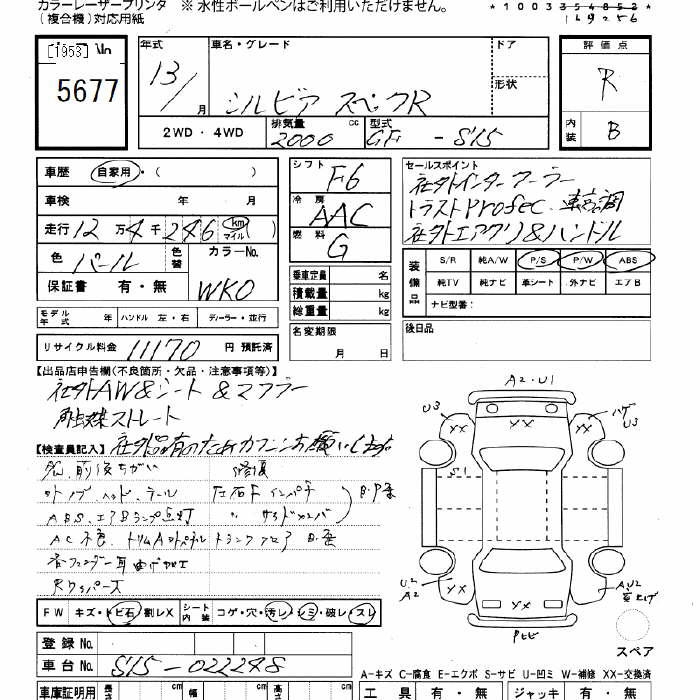 カラーレーザープリンタ ※ 水性ボールペンはご利用いただけません。
(複合機)対応用紙
*1003354852*
149256
[1953]
5677
年式
13/
月
車名・グレード
シルビア スペックR
ドア
形状
2WD・4WD
排気量
2000 cc
型式
GF - S15
評価点
R
内装
B
車歴 自家用・( )
車検 年 月
走行 12万4千246 km マイル
色 パール
色替
カラーNo.
WKO
保証書 有・無
モデル年式 年 ハンドル 左・右 ディーラー・並行
リサイクル料金 11170 円 預託済
シフト
F6
冷房
AAC
燃料
G
乗車定員 名
積載量 kg
総重量 kg
名変期限
月 日
セールスポイント
社外インタークーラー
トラストProfec 車高調
社外エアクリ&ハンドル
装備品
S/R 純A/W P/S P/W ABS
純TV 純ナビ 革シート 外ナビ エアB
ナビ型番:
後日品
【出品店申告欄(不良箇所・欠品・注意事項等)】
社外AW&シート&マフラー
触媒ストレート
【検査員記入】 社外品有のためカクニンお願いします。
前後ちがい 修復
外ノブ ヘッド、テール 左右Fインパネ
ABS、エアBランプ点灯 〃 サイドメンバ
AC不良
トランクフロア
各フェンダー耳曲げ加工
Rワイパーズ
FW キズ・トビ石 割レX シート内装 コゲ・穴・汚レ・シミ・破レ・スレ
登録No.
車台No. S15-022248
車庫証明用 cm 幅 cm cm
A2・U1
U3
XX
XX
ハゲ
U3
S1
U2
A2
XX
XX
AU2
XX
トビ
スペア
A-キズ C-腐食 E-エクボ S-サビ U-凹ミ W-補修 XX-交換済
工具 有・無 ジャッキ 有・無